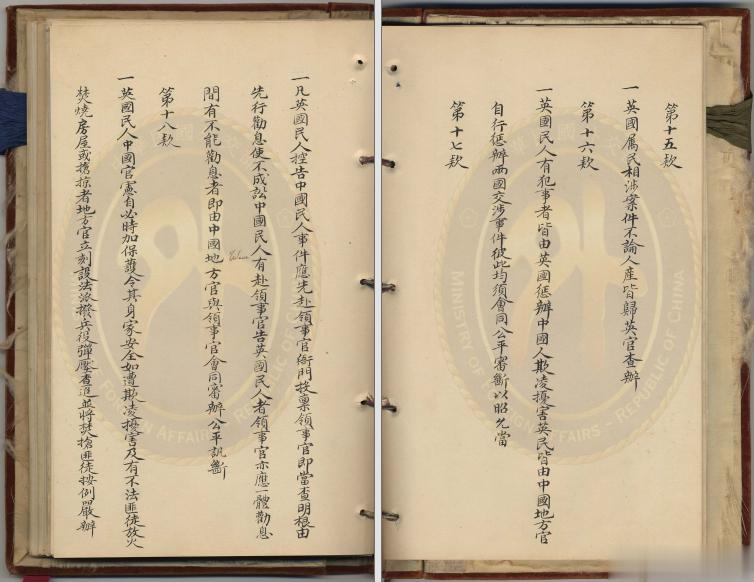 第十五款
一英國属民相涉案件不論人産皆歸英官查辦
第十六款
一英國民人有犯事者皆由英國懲辦中國人欺凌擾害英民皆由中國地方官
自行懲辦兩國交涉事件彼此均須會同公平審斷以昭允當
第十七款
一凡英國民人控告中國民人事件應先赴領事官衙門投稟領事官即當查明根由
先行勸息使不成訟中國民人有赴領事官告英國民人者領事官亦應一體勸息
間有不能勸息者即由中國地方官與領事官會同審辦公平訊斷
第十八款
一英國民人中國官憲自必時加保護令其身家安全如遭欺凌擾害及有不法匪徒放火
焚燒房屋或搶掠者地方官立刻設法派撥兵役彈壓查追並將焚搶匪徒按例嚴辦
MINISTRY OF FOREIGN AFFAIRS · REPUBLIC OF CHINA